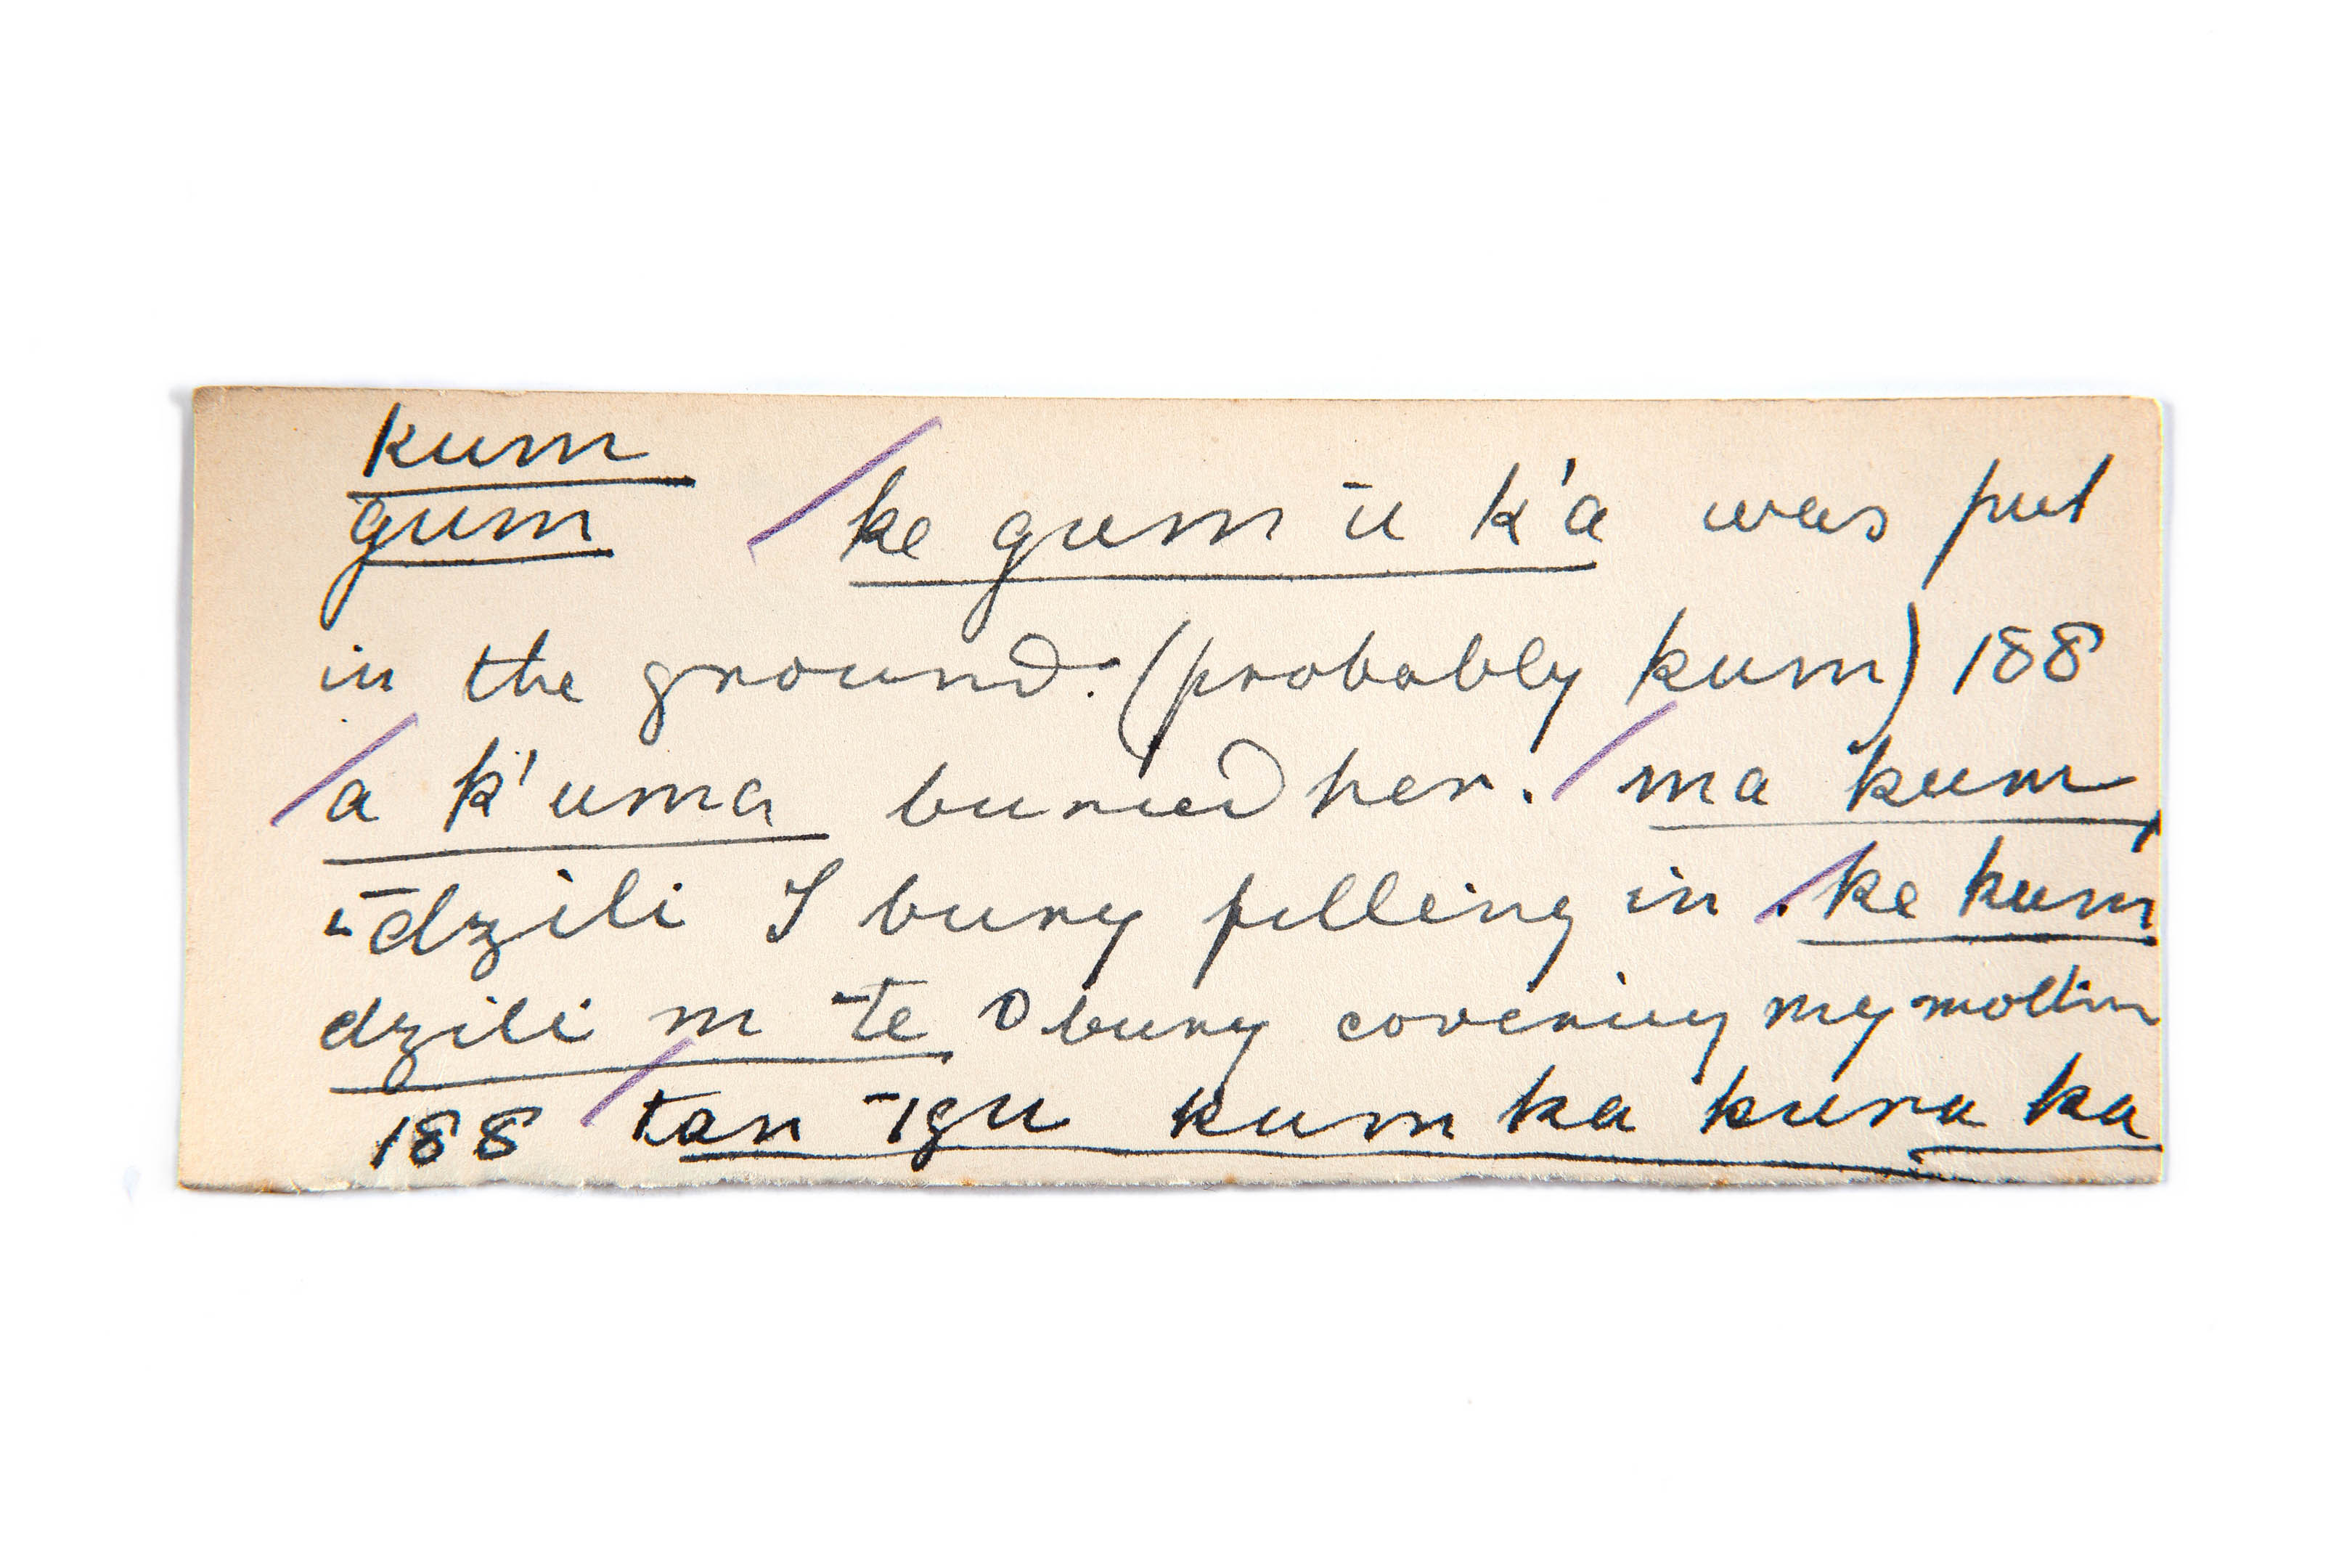 kum
gum ke gum ū k'a was put
in the ground. (probably kum) 188
a k'uma buried her. ma kum,
-dzili I bury filling in. ke kum
dzili m te bury covering my mother
188 tan īgu kum ka kuru ka